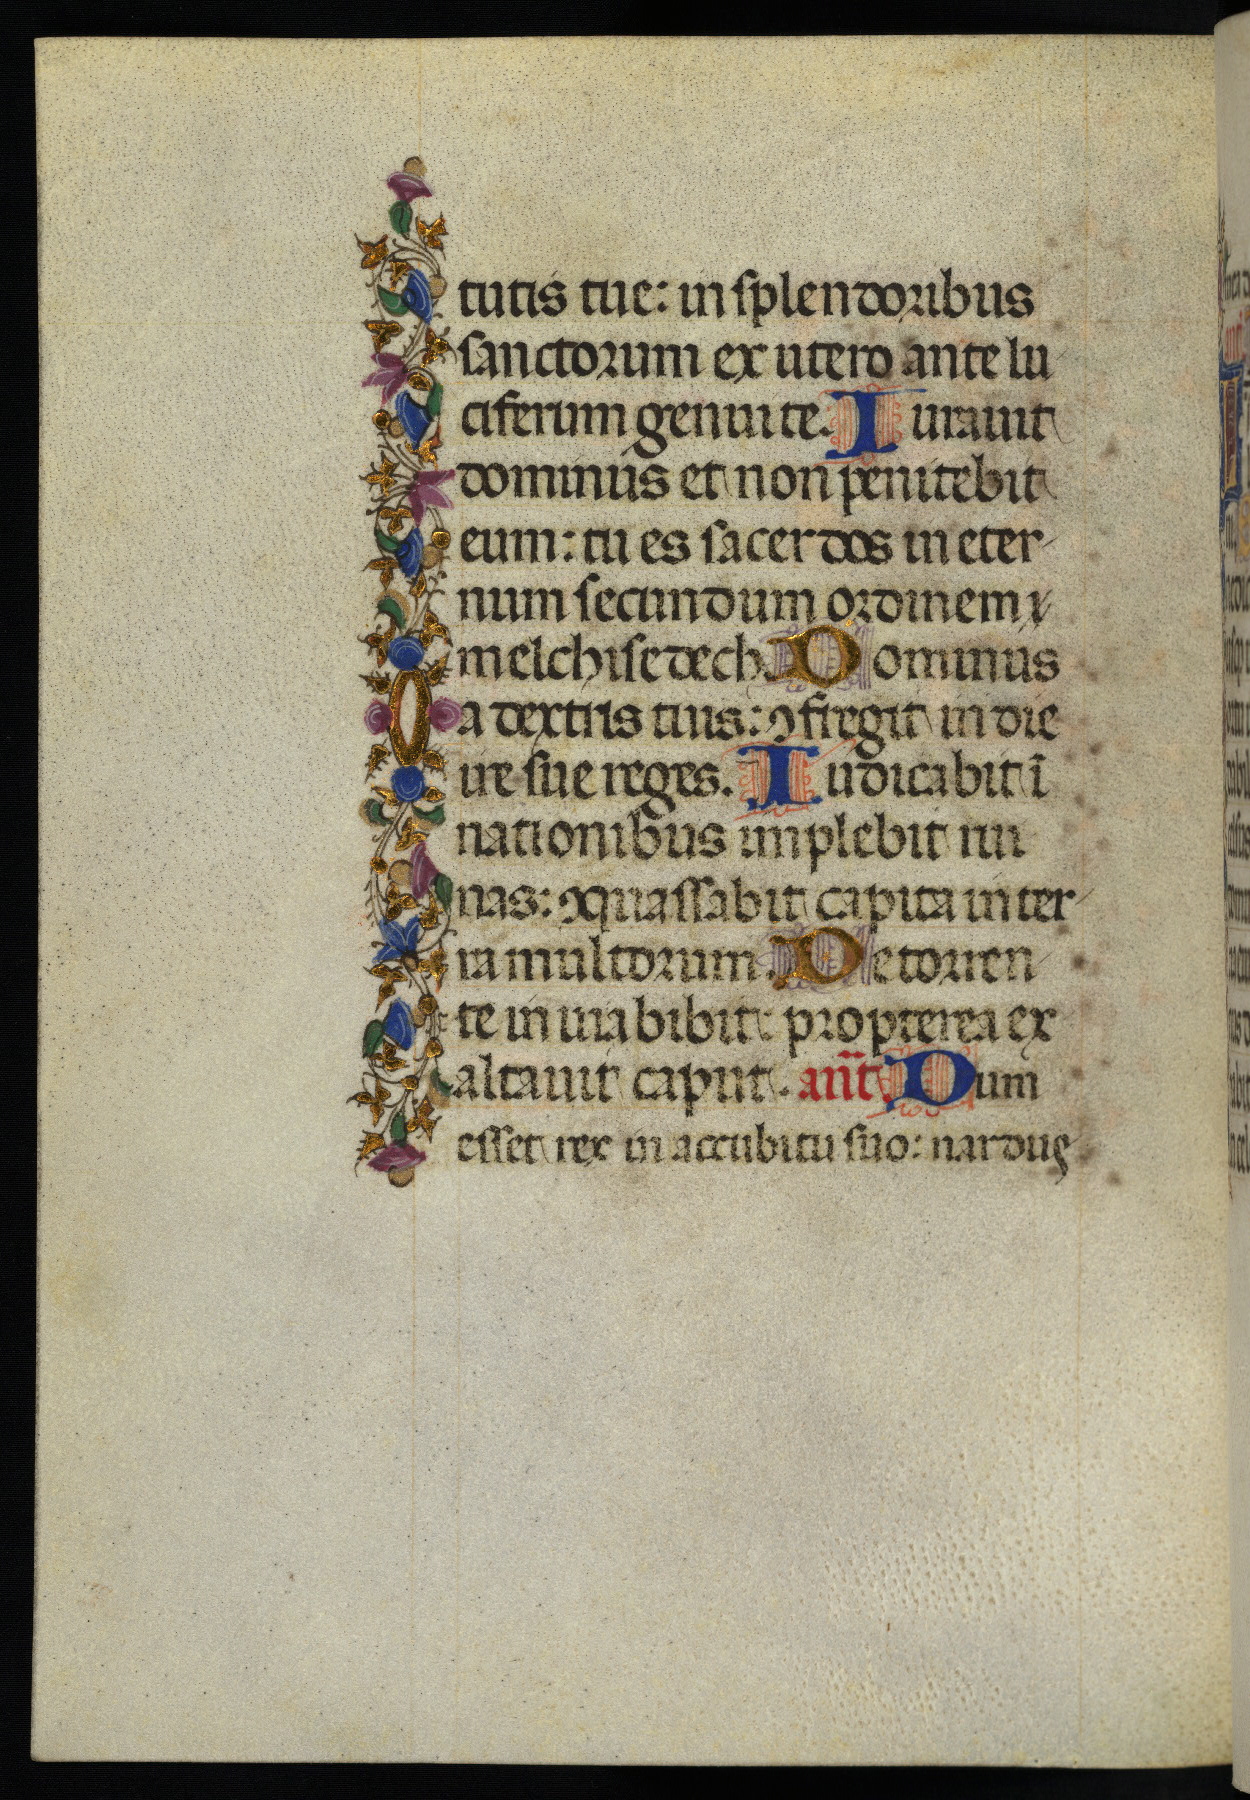 tutis tue: in splendoribus
sanctorum ex utero ante lu
ciferum genui te. Iurauit
dominus et non penitebit
eum: tu es sacerdos in eter-
num secundum ordinem
melchisedech. Dominus
a dextris tuis: ꝯfregit in die
ire sue reges. Iudicabit ī
nationibus implebit rui
nas: ꝯquassabit capita in ter-
ra multorum. De torren
te in uia bibit: propterea ex
altauit caput. an̄t. Dum
esset rex in accubitu suo: nardus